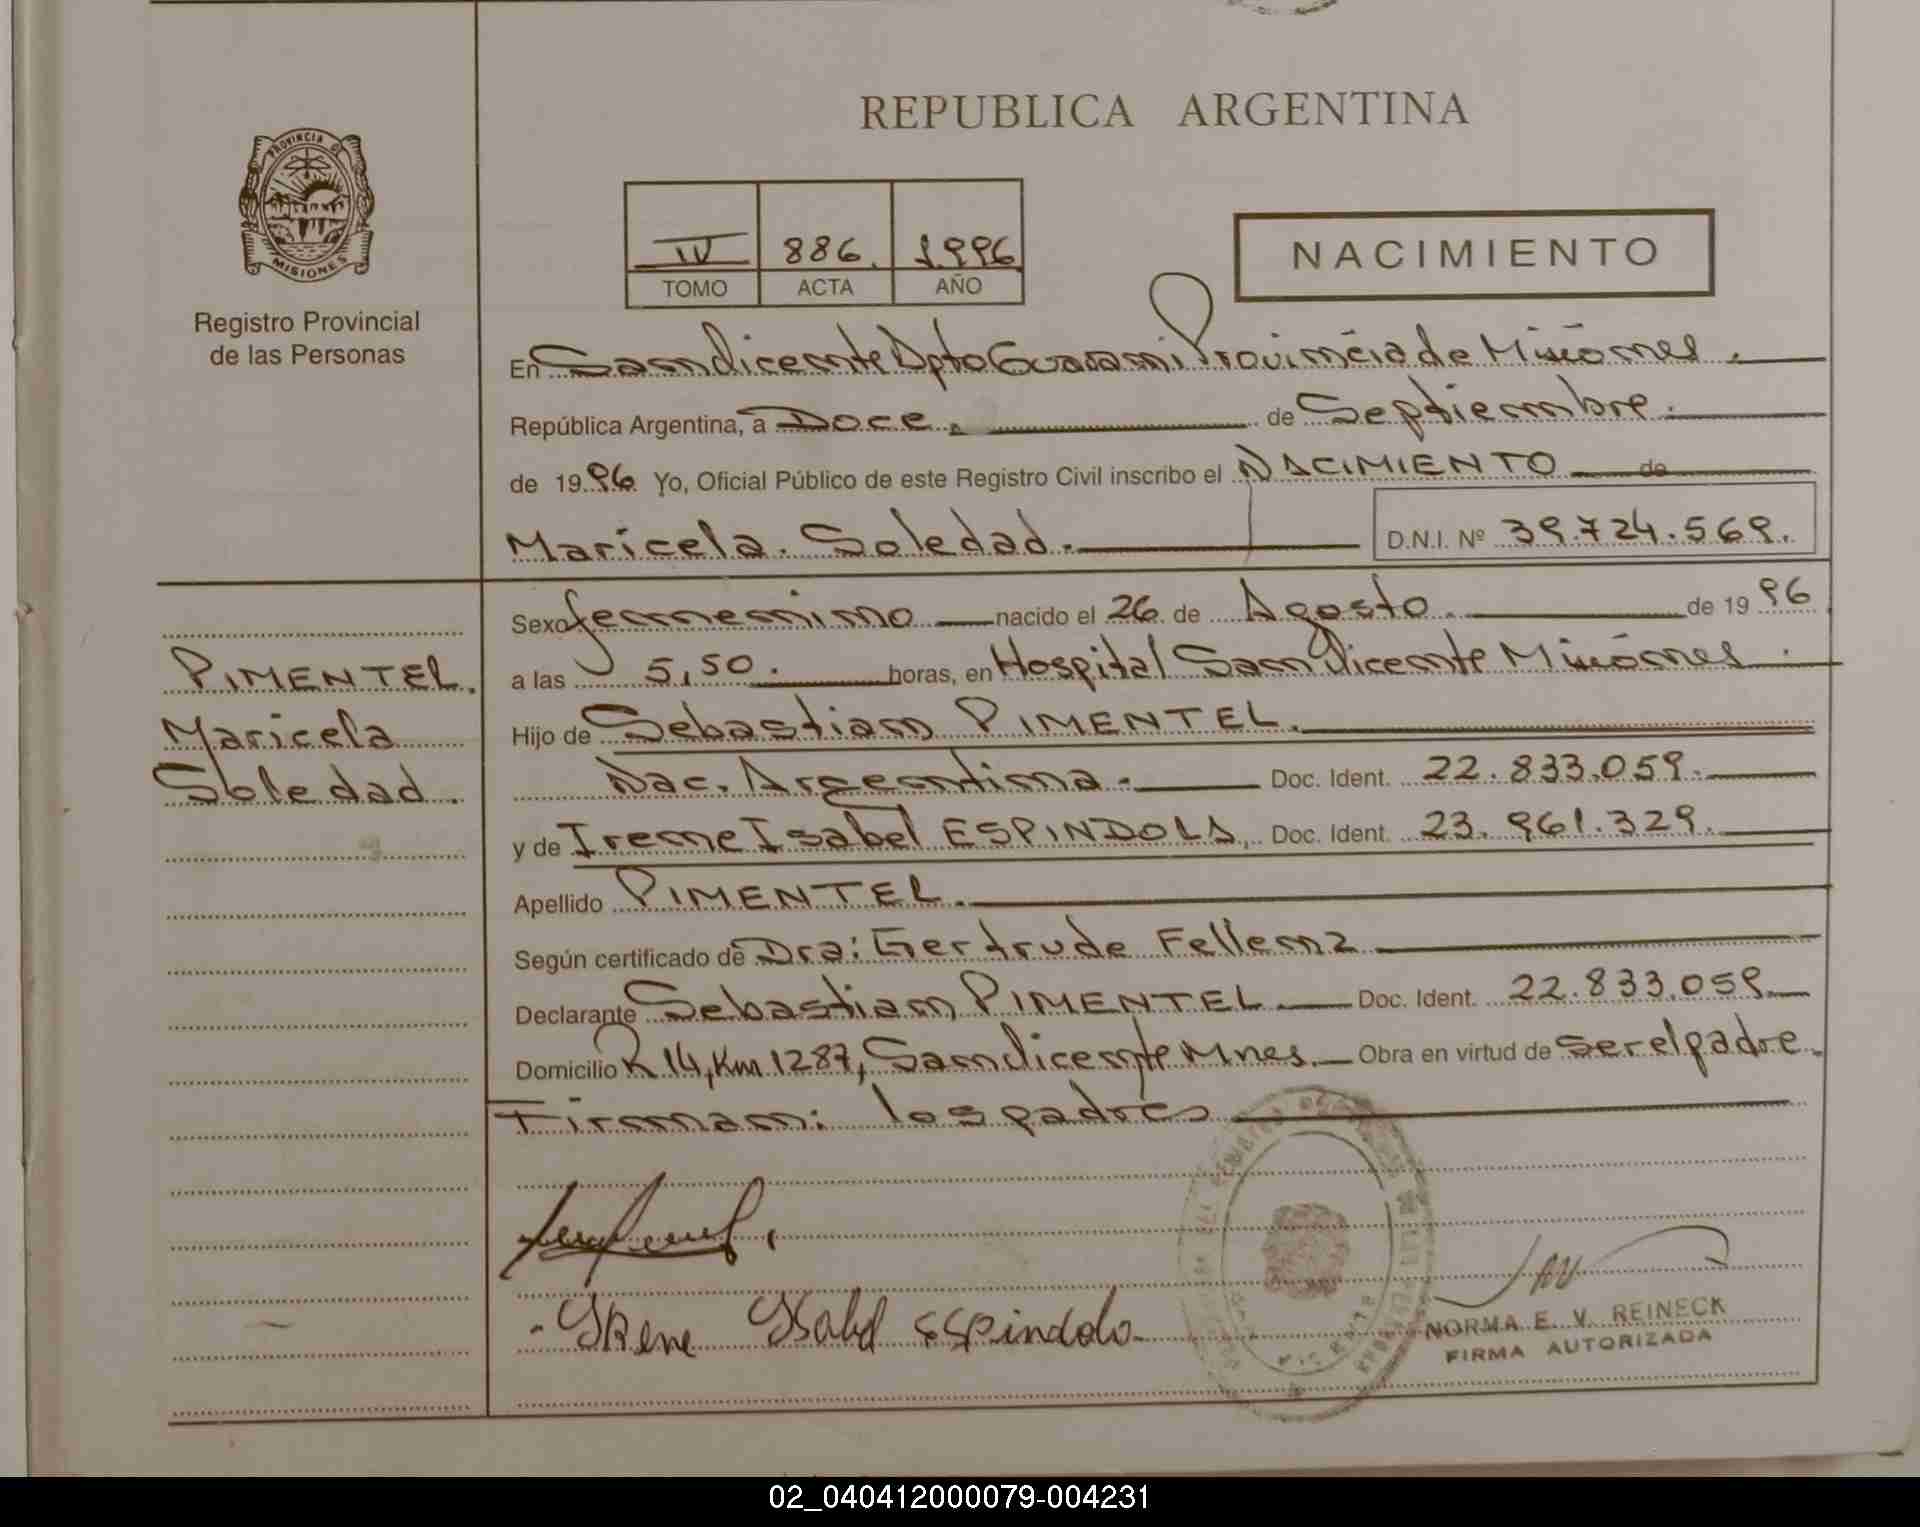 REPUBLICA ARGENTINA
PROVINCIA DE
MISIONES
Registro Provincial
de las Personas
IV 886. 1.996
TOMO ACTA AÑO
NACIMIENTO
En San Vicente Dpto Guaraní Provincia de Misiones.
República Argentina, a Doce. de Septiembre.
de 19 96 Yo, Oficial Público de este Registro Civil inscribo el NACIMIENTO de
Maricela. Soledad. D.N.I. Nº 39.724.569.
Sexo femenino nacido el 26 de Agosto. de 19 96
a las 5,50. horas, en Hospital San Vicente Misiones.
Hijo de Sebastian PIMENTEL.
Nac. Argentina. Doc. Ident. 22.833.059.
y de Irene Isabel ESPINDOLA, Doc. Ident. 23.961.329.
Apellido PIMENTEL.
Según certificado de Dra: Gertrude Fellenz
Declarante Sebastian PIMENTEL. Doc. Ident. 22.833.059.
Domicilio R 14, Km 1287, San Vicente Mnes. Obra en virtud de Ser el padre.
Firman: los padres
PIMENTEL.
Maricela
Soledad.
- Yrene Ysabel Espindola
NORMA E. V. REINECK
FIRMA AUTORIZADA
02_040412000079-004231